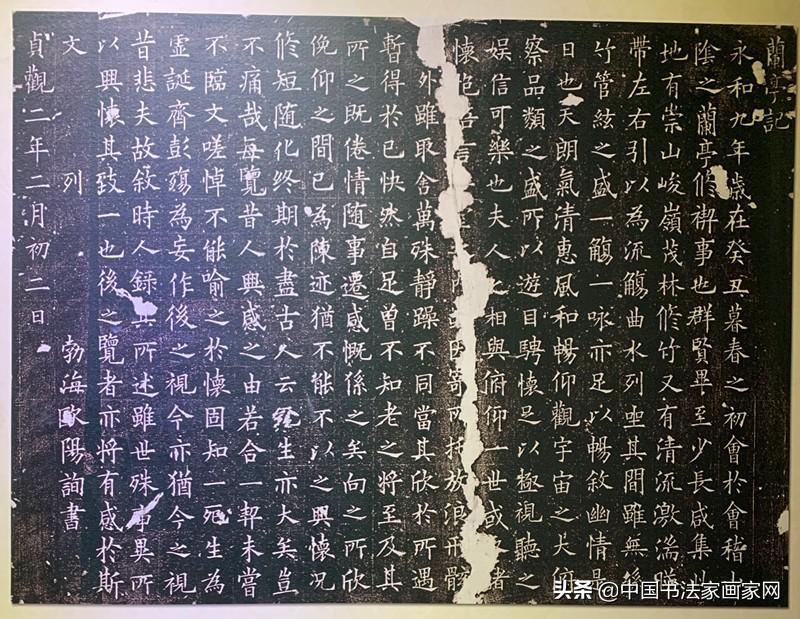 蘭亭記
永和九年歲在癸丑暮春之初會於會稽
陰之蘭亭脩禊事也群賢畢至少長咸集
地有崇山峻嶺茂林脩竹又有清流激湍暎
帶左右引以為流觴曲水列坐其間雖無絲
竹管絃之盛一觴一咏亦足以暢敘幽情是
日也天朗氣清惠風和暢仰觀宇宙之大俯
察品類之盛所以遊目騁懷足以極視聽之
娛信可樂也夫人之相與俯仰一世或者
懷抱言因寄所托放浪形骸
外雖取舍萬殊靜躁不同當其欣於所遇
暫得於己快然自足曾不知老之將至及其
所之既倦情隨事遷感慨係之矣向之所欣
俛仰之間已為陳迹猶不能不以之興懷況
脩短隨化終期於盡古人云死生亦大矣豈
不痛哉每覽昔人興感之由若合一契未嘗
不臨文嗟悼不能喻之於懷固知一死生為
虛誕齊彭殤為妄作後之視今亦猶今之視
昔悲夫故敘時人錄其所述雖世殊事異所
以興懷其致一也後之覽者亦將有感於斯
文 列 勃海歐陽詢書
貞觀二年二月初二日
头条 @中国书法家画家网